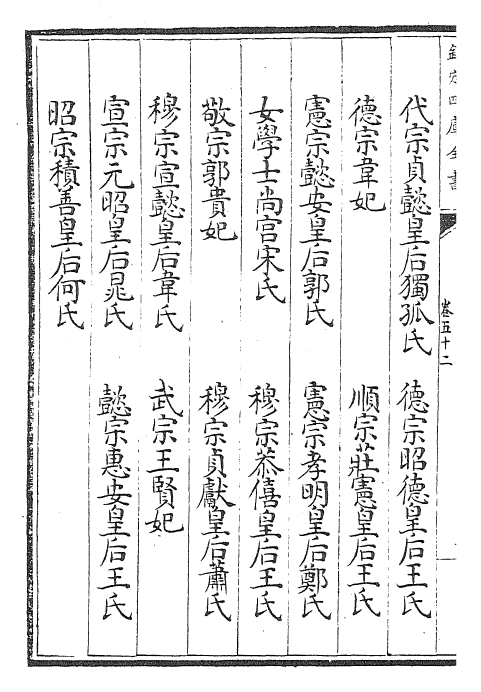 欽定四庫全書
卷五十二
代宗貞懿皇后獨孤氏　德宗昭德皇后王氏
德宗韋妃　順宗莊憲皇后王氏
憲宗懿安皇后郭氏　憲宗孝明皇后鄭氏
女學士尚宮宋氏　穆宗恭僖皇后王氏
敬宗郭貴妃　穆宗貞獻皇后蕭氏
穆宗宣懿皇后韋氏　武宗王賢妃
宣宗元昭皇后晁氏　懿宗惠安皇后王氏
昭宗積善皇后何氏